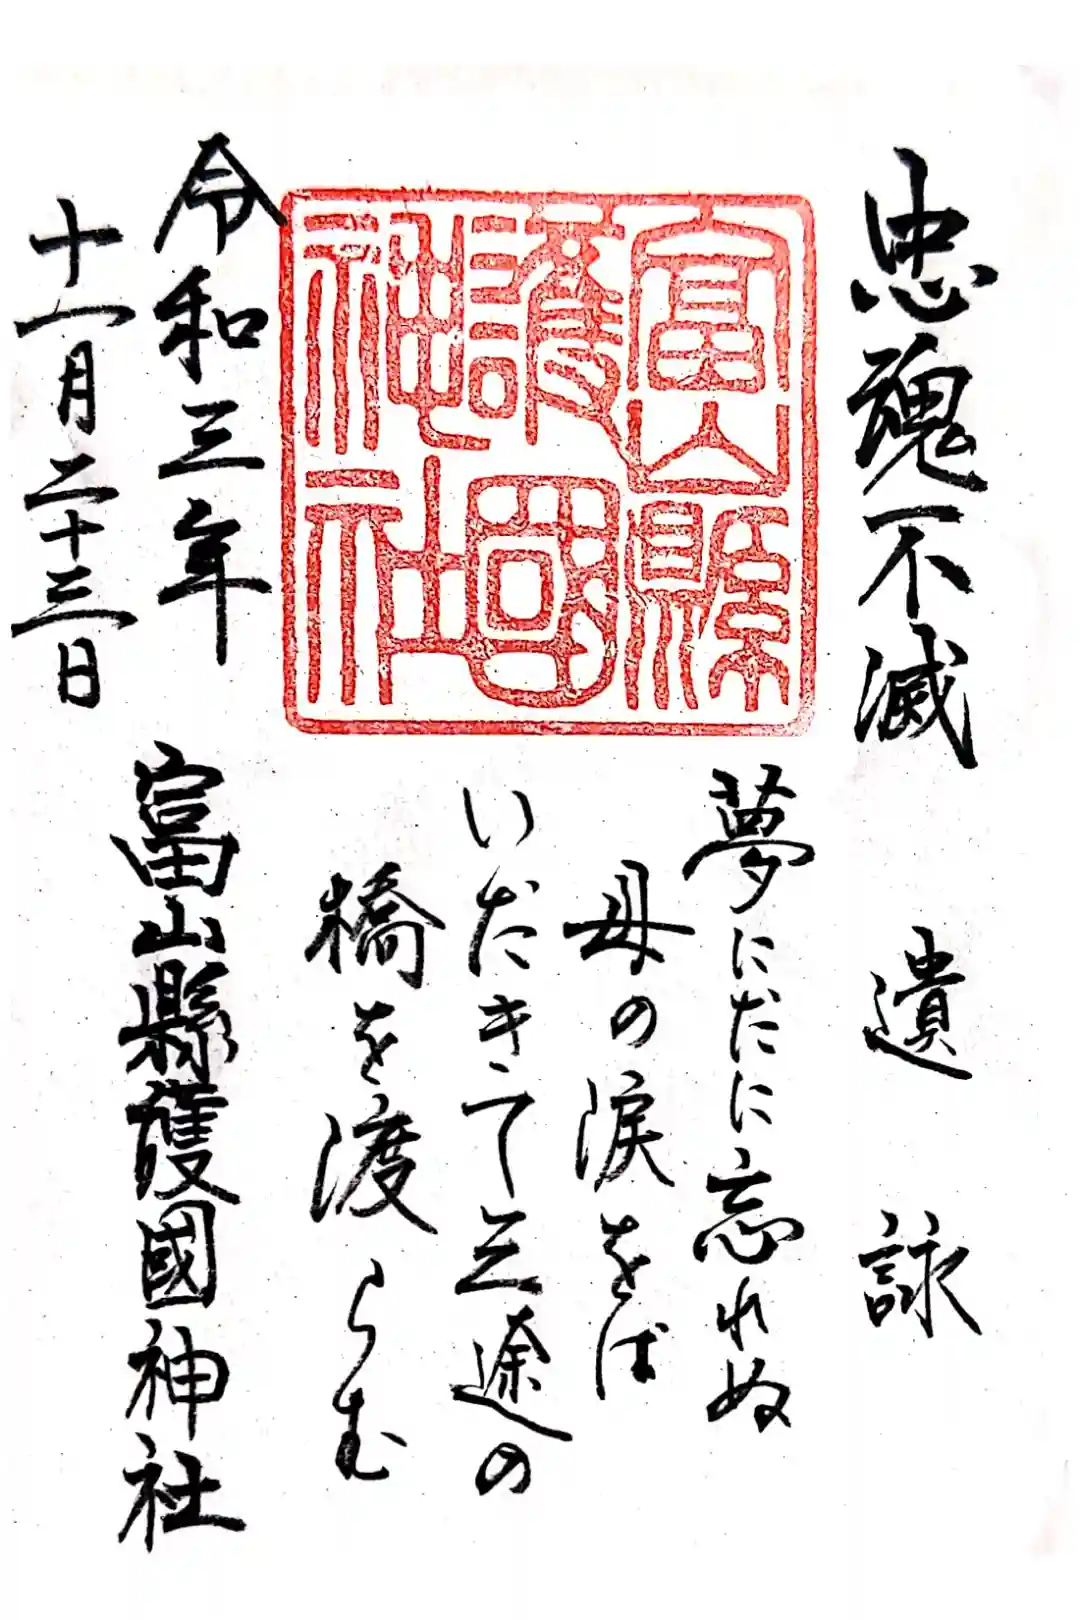 忠魂不滅
遺詠
富山縣
護國
神社
夢にだに忘れぬ
母の涙をば
いだきて三途の
橋を渡らむ
令和三年
十一月二十三日
富山縣護國神社